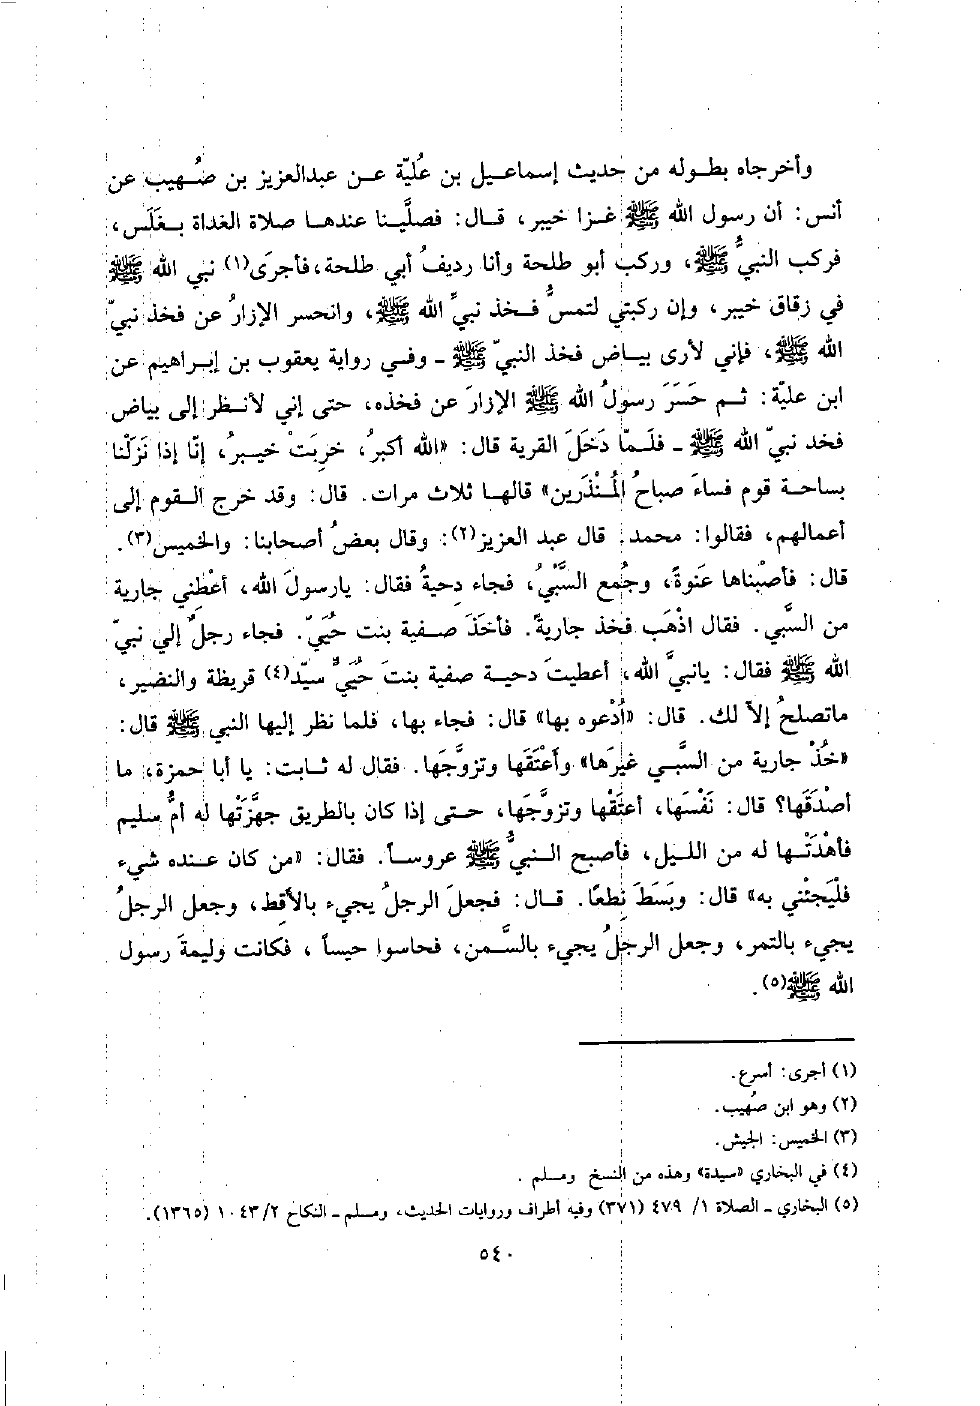 وأخرجاه بطوله من حديث إسماعيل بن عُليّة عن عبدالعزيز بن صُهيب عن
أنس: أن رسول الله ﷺ غزا خيبر، قال: فصلّينا عندها صلاة الغداة بغَلَس،
فركب النبيُّ ﷺ، وركب أبو طلحة وأنا رديفُ أبي طلحة، فأجرَى(١) نبي الله ﷺ
في زقاق خيبر، وإن ركبتي لتمسُّ فخذ نبيِّ الله ﷺ، وانحسر الإزارُ عن فخذ نبيّ
الله ﷺ، فإني لأرى بياض فخذ النبيّ ﷺ - وفي رواية يعقوب بن إبراهيم عن
ابن عليّة: ثم حَسَرَ رسولُ الله ﷺ الإزارَ عن فخذه، حتى إني لأنظر إلى بياض
فخد نبيّ الله ﷺ - فلمّا دَخَلَ القرية قال: «الله أكبرُ، خرِبَتْ خيبرُ، إنّا إذا نَزَلْنا
بساحة قوم فساءَ صباحُ المُنْذَرين» قالها ثلاث مرات. قال: وقد خرج القوم إلى
أعمالهم، فقالوا: محمد. قال عبد العزيز(٢): وقال بعضُ أصحابنا: والخميس(٣).
قال: فأصْبناها عَنوةً، وجُمع السَّبْيُ، فجاء دِحيةُ فقال: يارسولَ الله، أعْطِني جارية
من السَّبي. فقال اذْهَب فخذ جاريةً. فأخَذَ صفية بنت حُيَيّ. فجاء رجلٌ إلي نبيّ
الله ﷺ فقال: يانبيَّ الله، أعطيتَ دحية صفية بنتَ حُيَيٍّ سيّد(٤) قريظة والنضير،
ماتصلحُ إلاّ لك. قال: «اُدْعوه بها» قال: فجاء بها، فلما نظر إليها النبي ﷺ قال:
«خُذْ جارية من السَّبي غيرَها» وأعْتَقَها وتزوجَّها. فقال له ثابت: يا أبا حمزة، ما
أصْدَقَها؟ قال: نَفْسَها، أعتَقْها وتزوَّجَها، حتى إذا كان بالطريق جهَّزَتْها له أمُّ سليم
فأهْدَتْها له من الليل، فأصبح النبيُّ ﷺ عروساً. فقال: «من كان عنده شيء
فلْيَجِئْني به» قال: وبَسَطَ نِطعًا. قال: فجعلَ الرجلُ يجيء بالأقِط، وجعل الرجلُ
يجيء بالتمر، وجعل الرجلُ يجيء بالسَّمن، فحاسوا حيساً، فكانت وليمةَ رسول
الله ﷺ(٥).
(١) أجرى: أسرع.
(٢) وهو ابن صُهيب.
(٣) الخميس: الجيش.
(٤) في البخاري «سيدة» وهذه من النسخ ومسلم.
(٥) البخاري - الصلاة ١/ ٤٧٩ (٣٧١) وفيه أطراف وروايات الحديث، ومسلم - النكاح ٢/ ١٠٤٣ (١٣٦٥).
٥٤٠